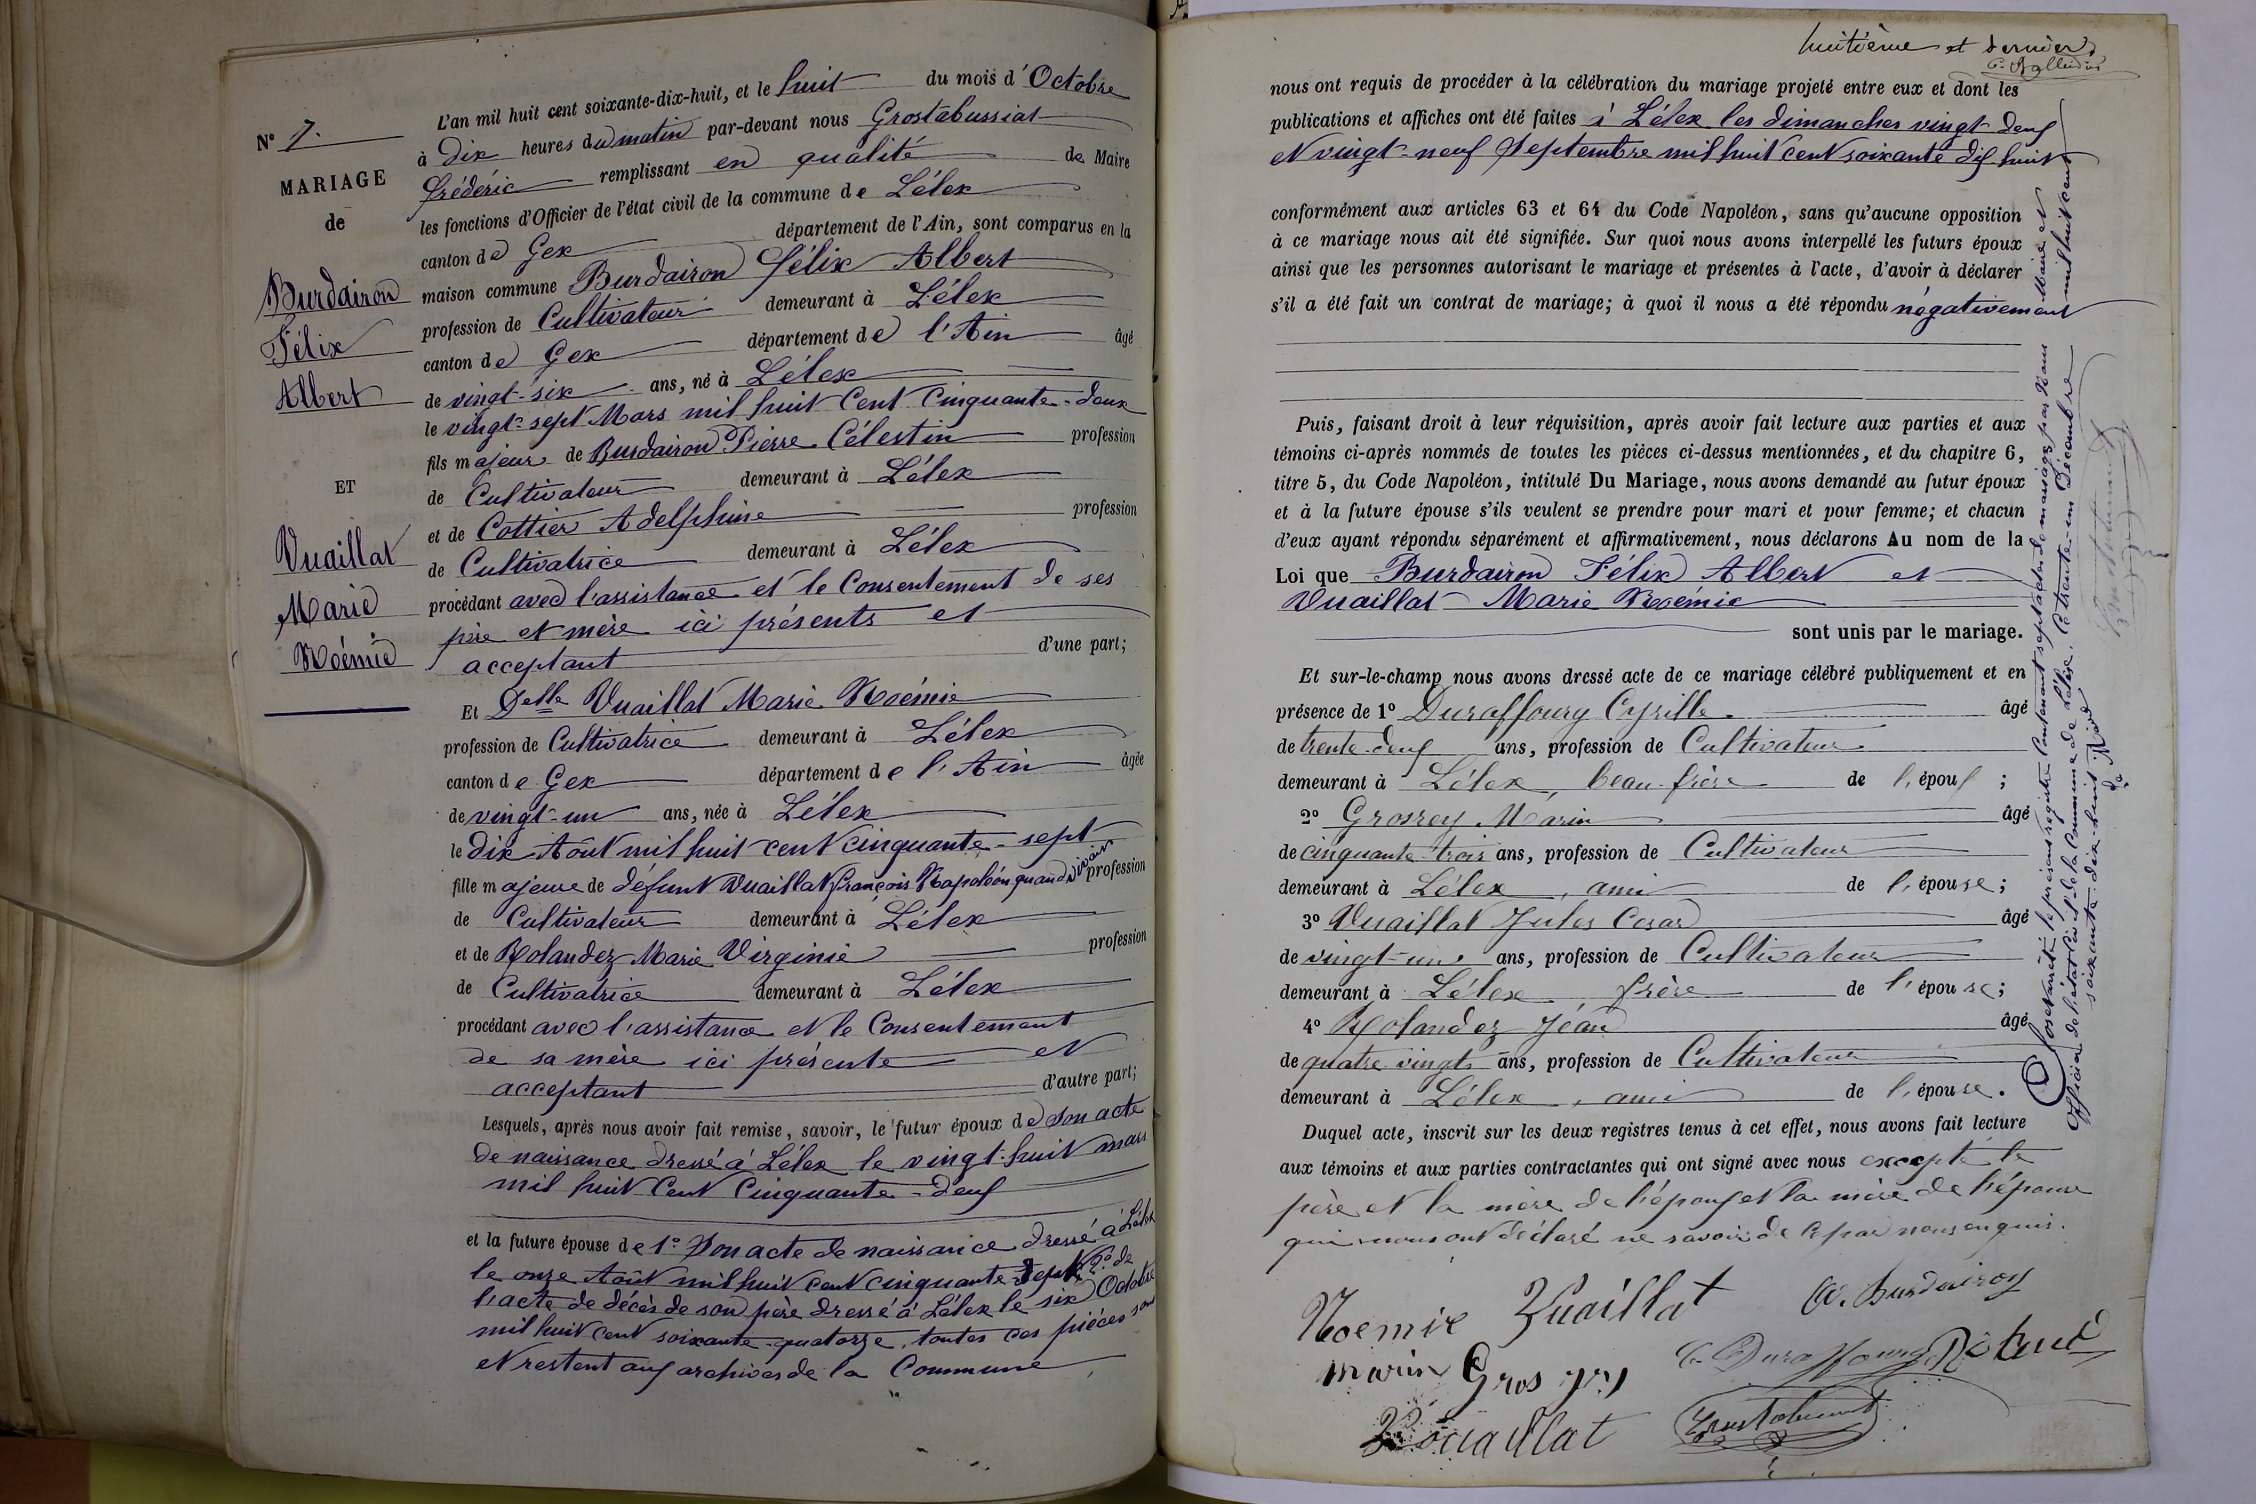 N° 7.
MARIAGE
de
Burdairon
Félix
Albert
ET
Vuaillat
Marie
Noémie
L'an mil huit cent soixante-dix-huit, et le huit du mois d'Octobre
à dix heures du matin par-devant nous Grostabussiat
frédéric remplissant en qualité de Maire
les fonctions d'Officier de l'état civil de la commune de Lélex
canton de Gex département de l'Ain, sont comparus en la
maison commune Burdairon félix Albert
profession de Cultivateur demeurant à Lélex
canton de Gex département de l'Ain âgé
de vingt-six ans, né à Lélex
le vingt-sept Mars mil huit Cent Cinquante-deux
fils majeur de Burdairon Pierre Célestin profession
de Cultivateur demeurant à Lélex
et de Cottier Adelphine profession
de Cultivatrice demeurant à Lélex
procédant avec l'assistance et le Consentement de ses
père et mère ici présents et
acceptant d'une part;
Et Delle Vuaillat Marie Noémie
profession de Cultivatrice demeurant à Lélex
canton de Gex département de l'Ain âgée
de vingt-un ans, née à Lélex
le dix Août mil huit cent cinquante-sept
fille majeure de défunt Vuaillat françois Napoléon quand vivait profession
de Cultivateur demeurant à Lélex
et de Rolandez Marie Virginie profession
de Cultivatrice demeurant à Lélex
procédant avec l'assistance et le Consentement
de sa mère ici présente et
acceptant d'autre part;
Lesquels, après nous avoir fait remise, savoir, le futur époux de son acte
de naissance dressé à Lélex le vingt-huit mars
mil huit Cent Cinquante-deux
et la future épouse de 1° Son acte de naissance dressé à Lélex
le onze Août mil huit cent cinquante sept 2° de
l'acte de décès de son père dressé à Lélex le six Octobre
mil huit cent soixante-quatorze, toutes ces pièces sont
et restent aux archives de la Commune
huitième et dernier
nous ont requis de procéder à la célébration du mariage projeté entre eux et dont les
publications et affiches ont été faites à Lélex les dimanches vingt-deux
et vingt-neuf Septembre mil huit cent soixante dix huit
conformément aux articles 63 et 64 du Code Napoléon, sans qu'aucune opposition
à ce mariage nous ait été signifiée. Sur quoi nous avons interpellé les futurs époux
ainsi que les personnes autorisant le mariage et présentes à l'acte, d'avoir à déclarer
s'il a été fait un contrat de mariage; à quoi il nous a été répondu négativement
Puis, faisant droit à leur réquisition, après avoir fait lecture aux parties et aux
témoins ci-après nommés de toutes les pièces ci-dessus mentionnées, et du chapitre 6,
titre 5, du Code Napoléon, intitulé Du Mariage, nous avons demandé au futur époux
et à la future épouse s'ils veulent se prendre pour mari et pour femme; et chacun
d'eux ayant répondu séparément et affirmativement, nous déclarons Au nom de la
Loi que Burdairon Félix Albert et
Vuaillat Marie Noémie
sont unis par le mariage.
Et sur-le-champ nous avons dressé acte de ce mariage célébré publiquement et en
présence de 1° Duraffourg Cyrille âgé
de trente-deux ans, profession de Cultivateur
demeurant à Lélex, beau-frère de l'époux;
2° Grosrey Marin âgé
de cinquante-trois ans, profession de Cultivateur
demeurant à Lélex, ami de l'épouse;
3° Vuaillat Jules Cesar âgé
de vingt-un ans, profession de Cultivateur
demeurant à Lélex, frère de l'épouse;
4° Rolandez Jéan âgé
de quatre vingts ans, profession de Cultivateur
demeurant à Lélex, ami de l'épouse.
Duquel acte, inscrit sur les deux registres tenus à cet effet, nous avons fait lecture
aux témoins et aux parties contractantes qui ont signé avec nous excepté le
père et la mère de l'époux et la mère de l'épouse
qui nous ont déclaré ne savoir de ce par nous enquis.
Noemie Vuaillat
A. Burdairon
Marin Grosrey
C. Duraffourg
Vouaillat
Grostabussiat
Clos et arrêté le présent registre Contenant sept actes de mariage par Nous Maire et
Officier de l'état civil de la Commune de Lélex. Ce trente-un Décembre mil huit cent
soixante-dix-huit
Le Maire